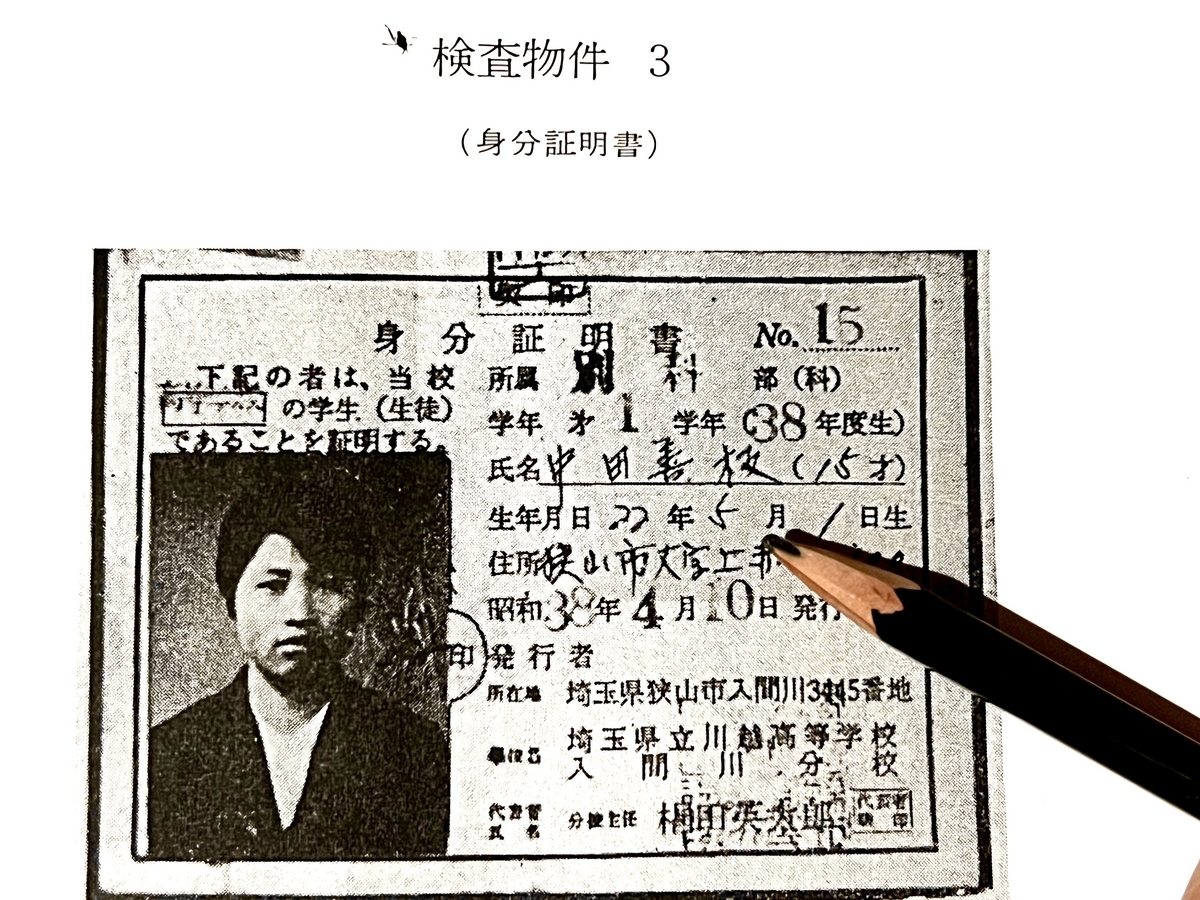 検査物件 3
(身分証明書)
契印
身分証明書 No. 15
下記の者は、当校
の学生(生徒)
であることを証明する。
所属 別科 部(科)
学年 第1学年(38年度生)
氏名 中田善枝(15才)
生年月日 22年5月1日生
住所 狭山市大字上赤
昭和38年4月10日発行
印 発行者
所在地 埼玉県狭山市入間川3445番地
学校名 埼玉県立川越高等学校
入間川分校
代表者
氏名
分校主任 田英太郎
代表者
職印